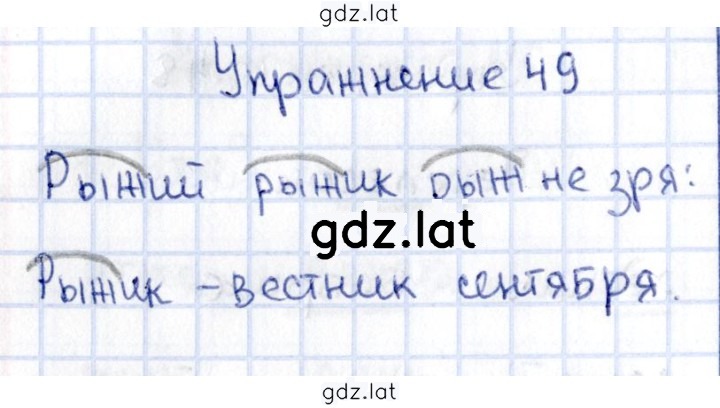 gdz.lat
Упражнение 49
Рыжий рыжик рыж не зря:
gdz.lat
Рыжик – вестник сентября.
gdz.lat